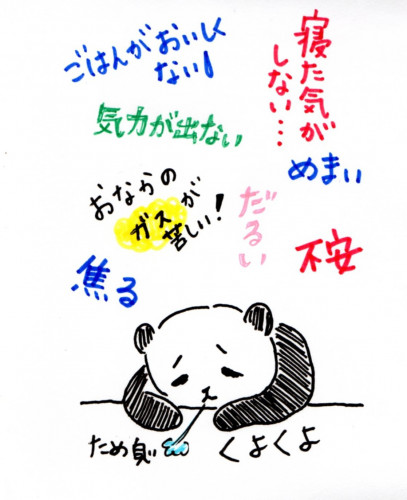 ごはんがおいしく
ない!
寝た気が
しない…
気力が出ない
めまい
おなかの
ガスが
苦しい!
だるい
不安
焦る
ため息
くよくよ